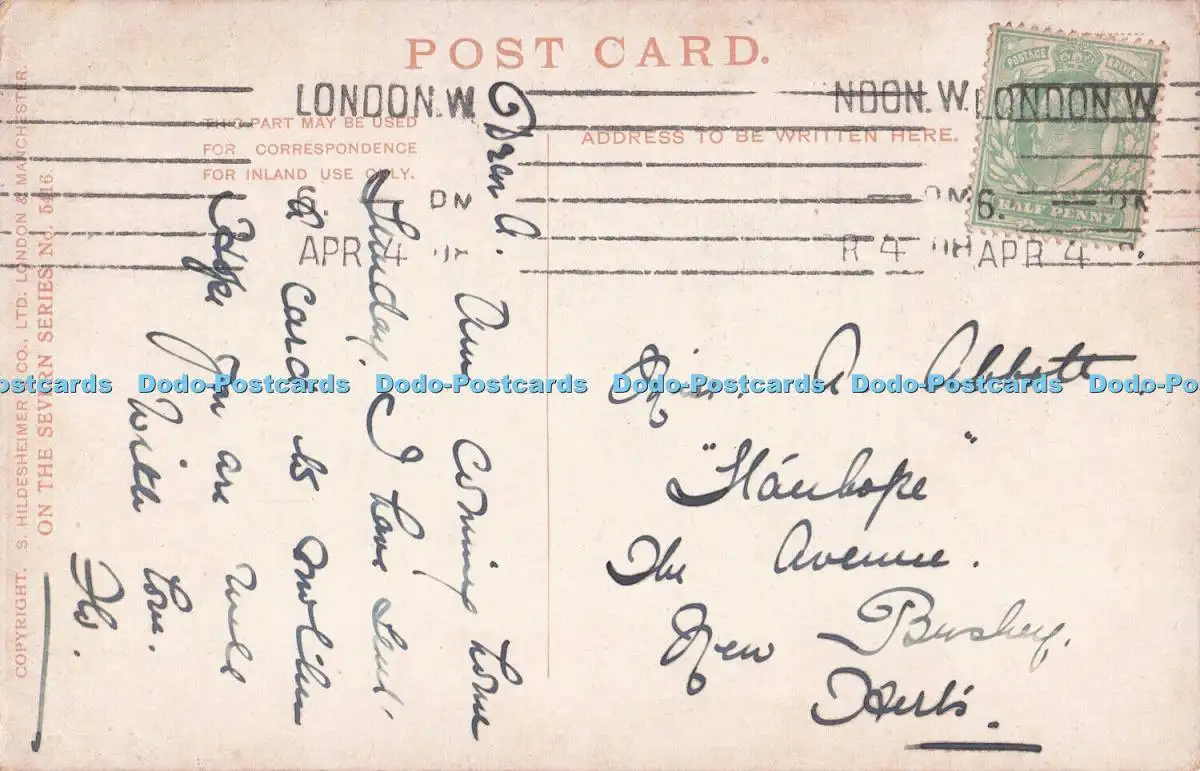 POST CARD.
THIS PART MAY BE USED
FOR CORRESPONDENCE
FOR INLAND USE ONLY.
ADDRESS TO BE WRITTEN HERE.
LONDON. W.
APR 4
NDON. W.
R 4 08
LONDON. W
6.
APR 4
POSTAGE & REVENUE
HALF PENNY
COPYRIGHT. S. HILDESHEIMER & CO., LTD. LONDON & MANCHESTER.
ON THE SEVERN SERIES No. 5416
Dear A. Am coming home
Sunday. I have sent
a card to mother
Hope you are well
With love.
Flo.
Miss. A Abbott.
"Stanhope"
The Avenue.
New Bushey.
Herts.
Dodo-Postcards Dodo-Postcards Dodo-Postcards Dodo-Postcards Dodo-Postcards